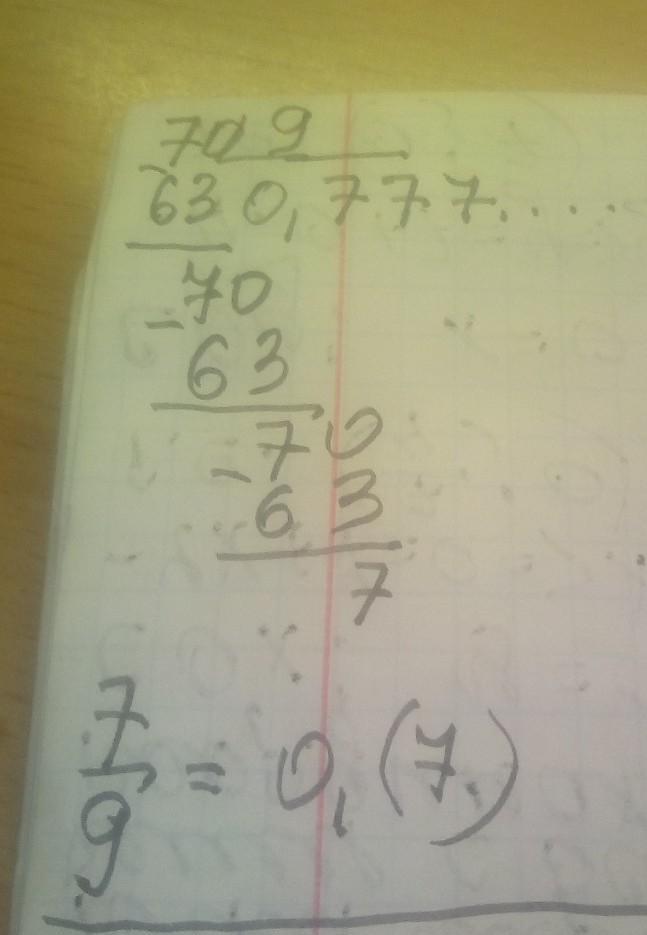 70 9
-63 0,777....
-70
63
-70
63
7
7/9 = 0,(7)